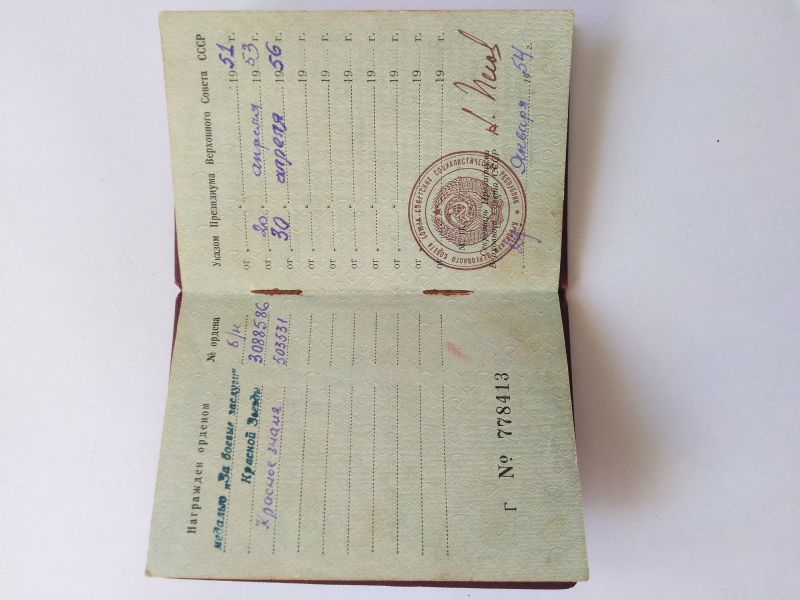 Награжден орденом
№ ордена
медалью „За боевые заслуги" б/н
Красной Звезды 3088586
Красное знамя 503531
Г № 778413
Указом Президиума Верховного Совета СССР
1951 г.
от „20" апреля 1953 г.
от „30" апреля 1956 г.
от „ " 19 г.
от „ " 19 г.
от „ " 19 г.
от „ " 19 г.
от „ " 19 г.
от „ " 19 г.
от „ " 19 г.
М. П.
Секретарь Президиума
Верховного Совета СССР
Января 1954 г.
СОЮЗА СОВЕТСКИХ СОЦИАЛИСТИЧЕСКИХ РЕСПУБЛИК ПРЕЗИДИУМ ВЕРХОВНОГО СОВЕТА